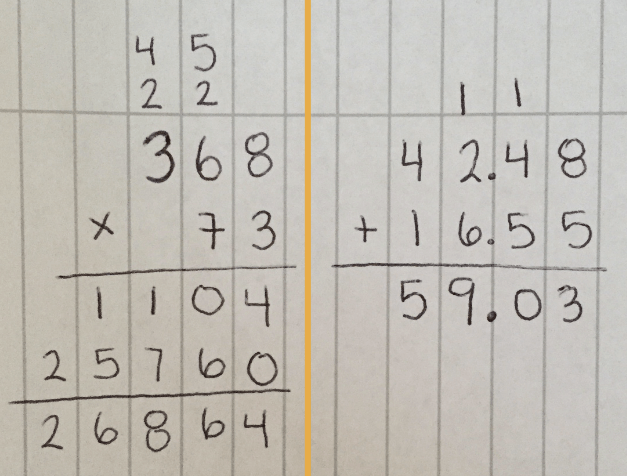 4 5
2 2
368
× 73
1104
25760
26864
1 1
42.48
+ 16.55
59.03